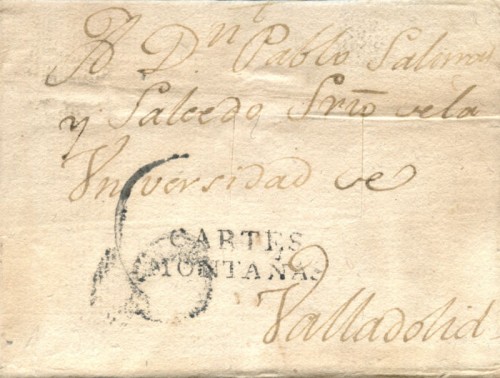 A Dn Pablo Salinas
y Salcedo Srio de la
Universidad de
6
CARTES
MONTAÑAS.
Valladolid